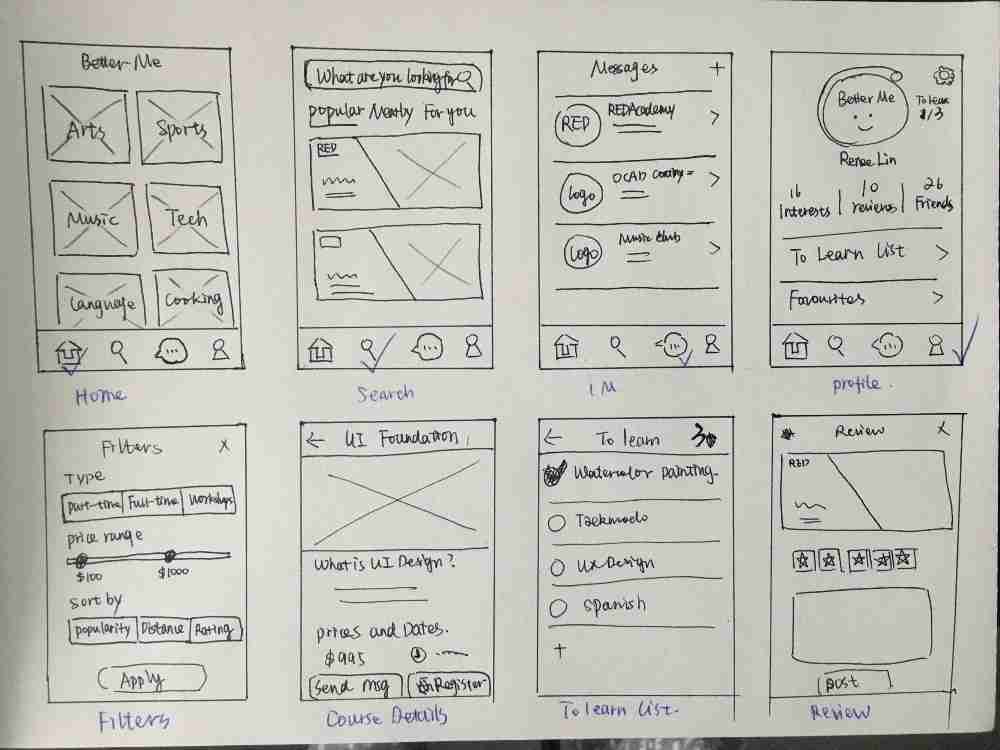 Better Me
Arts
Sports
Music
Tech
Language
Cooking
Home
What are you looking for
Popular Nearby For you
RED
Search
Messages +
RED
REDAcademy
Logo
OCAD
Logo
Music Club
IM
Better Me
To learn
1/3
Renee Lin
16
Interests
10
reviews
26
Friends
To Learn List >
Favourites >
profile.
Filters X
Type
Part-time Full-time Workshops
price range
$100
$1000
Sort by
Popularity Distance Rating
Apply
Filters
← UI Foundation
What is UI Design?
prices and Dates.
$995
Send msg
Register
Course Details
← To learn
Watercolor painting
Taekmodo
UX Design
Spanish
+
To learn List.
Review X
RED
post
Review